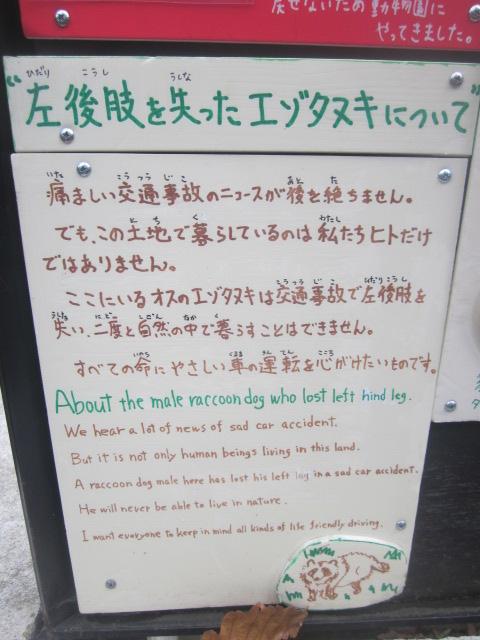 戻せないため動物園に
やってきました。
"左後肢を失ったエゾタヌキについて"
痛ましい交通事故のニュースが後を絶ちません。
でも、この土地で暮らしているのは私たちヒトだけ
ではありません。
ここにいるオスのエゾタヌキは交通事故で左後肢を
失い、二度と自然の中で暮らすことはできません。
すべての命にやさしい車の運転を心がけたいものです。
About the male raccoon dog who lost left hind leg.
We hear a lot of news of sad car accident.
But it is not only human beings living in this land.
A raccoon dog male here has lost his left leg in a sad car accident.
He will never be able to live in nature.
I want everyone to keep in mind all kinds of life friendly driving.